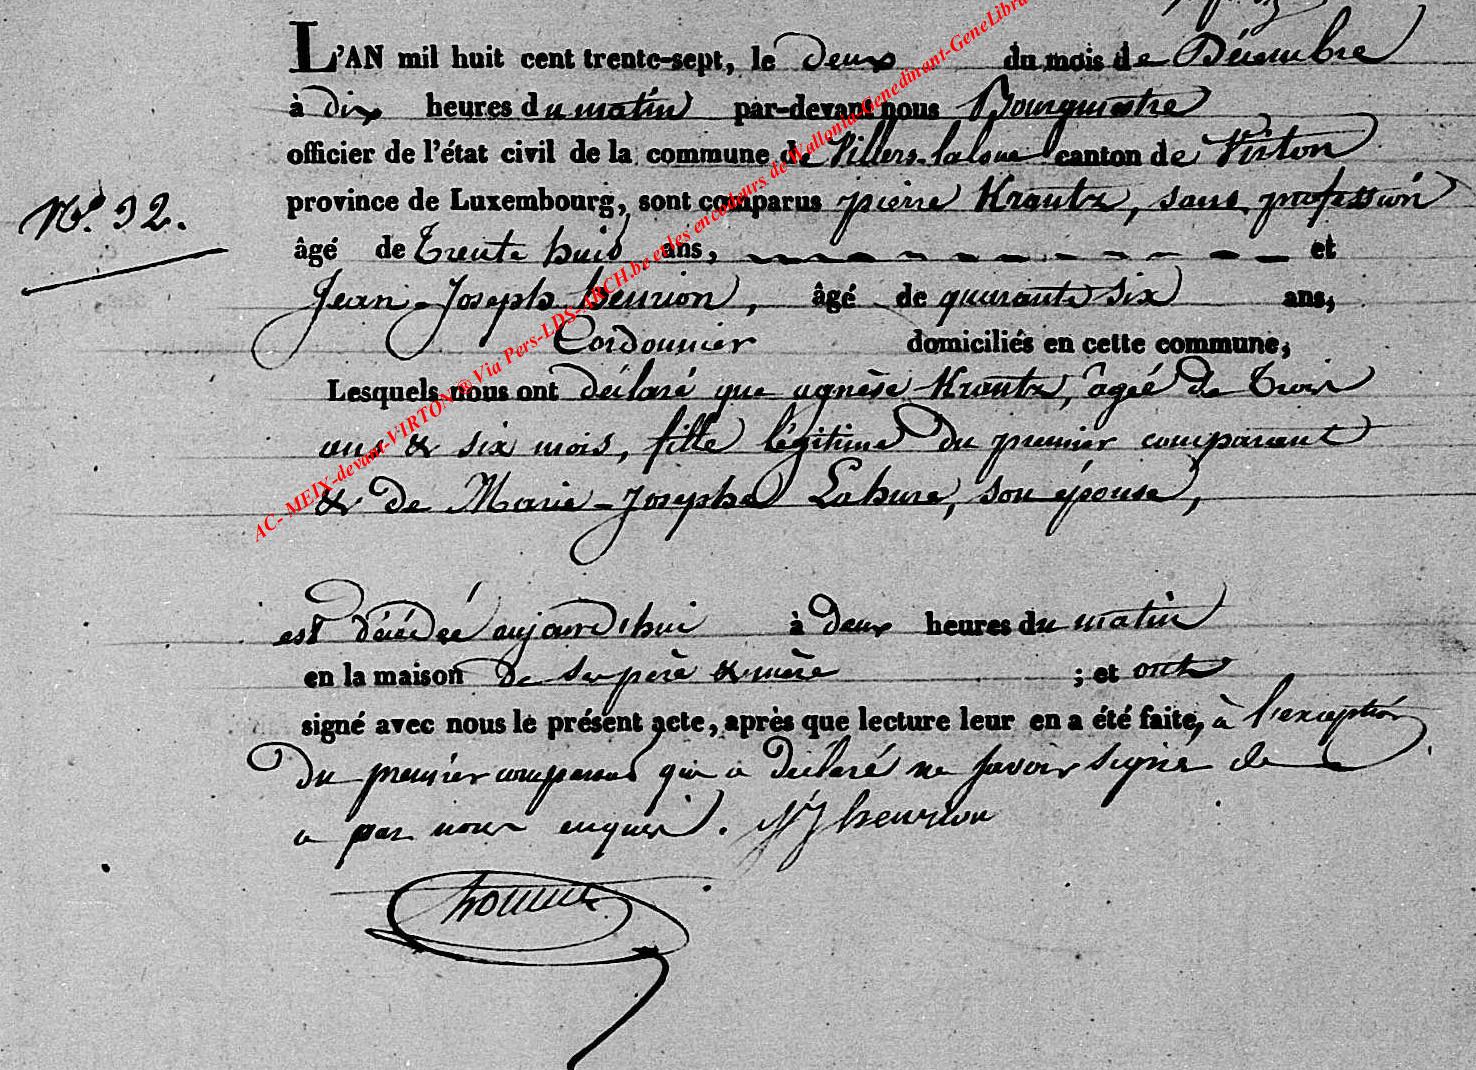 L'AN mil huit cent trente-sept, le deux du mois de Décembre
à dix heures du matin par-devant nous Bourgmestre
officier de l'état civil de la commune de Villers-laloue canton de Virton
province de Luxembourg, sont comparus pierre Krantz, sans profession
N.º 32.
âgé de trente huit ans, et
Jean-Joseph henrion, âgé de quarante six ans,
Cordonnier domiciliés en cette commune,
Lesquels nous ont déclaré que agnèse Krantz, âgée de trois
ans & six mois, fille légitime du premier comparant
& de Marie-Josephe Lahure, son épouse,
est décédée aujourd'hui à deux heures du matin
en la maison de ses père & mère ; et ont
signé avec nous le présent acte, après que lecture leur en a été faite, à l'exception
du premier comparant qui a déclaré ne savoir signer de ce
a par nous enquis. JJ henrion
AC- MEIX-devant-VIRTON ® Via Pers-LDS-ARCH.be et les encodeurs de Wallonia-Genedinant-GeneLibra